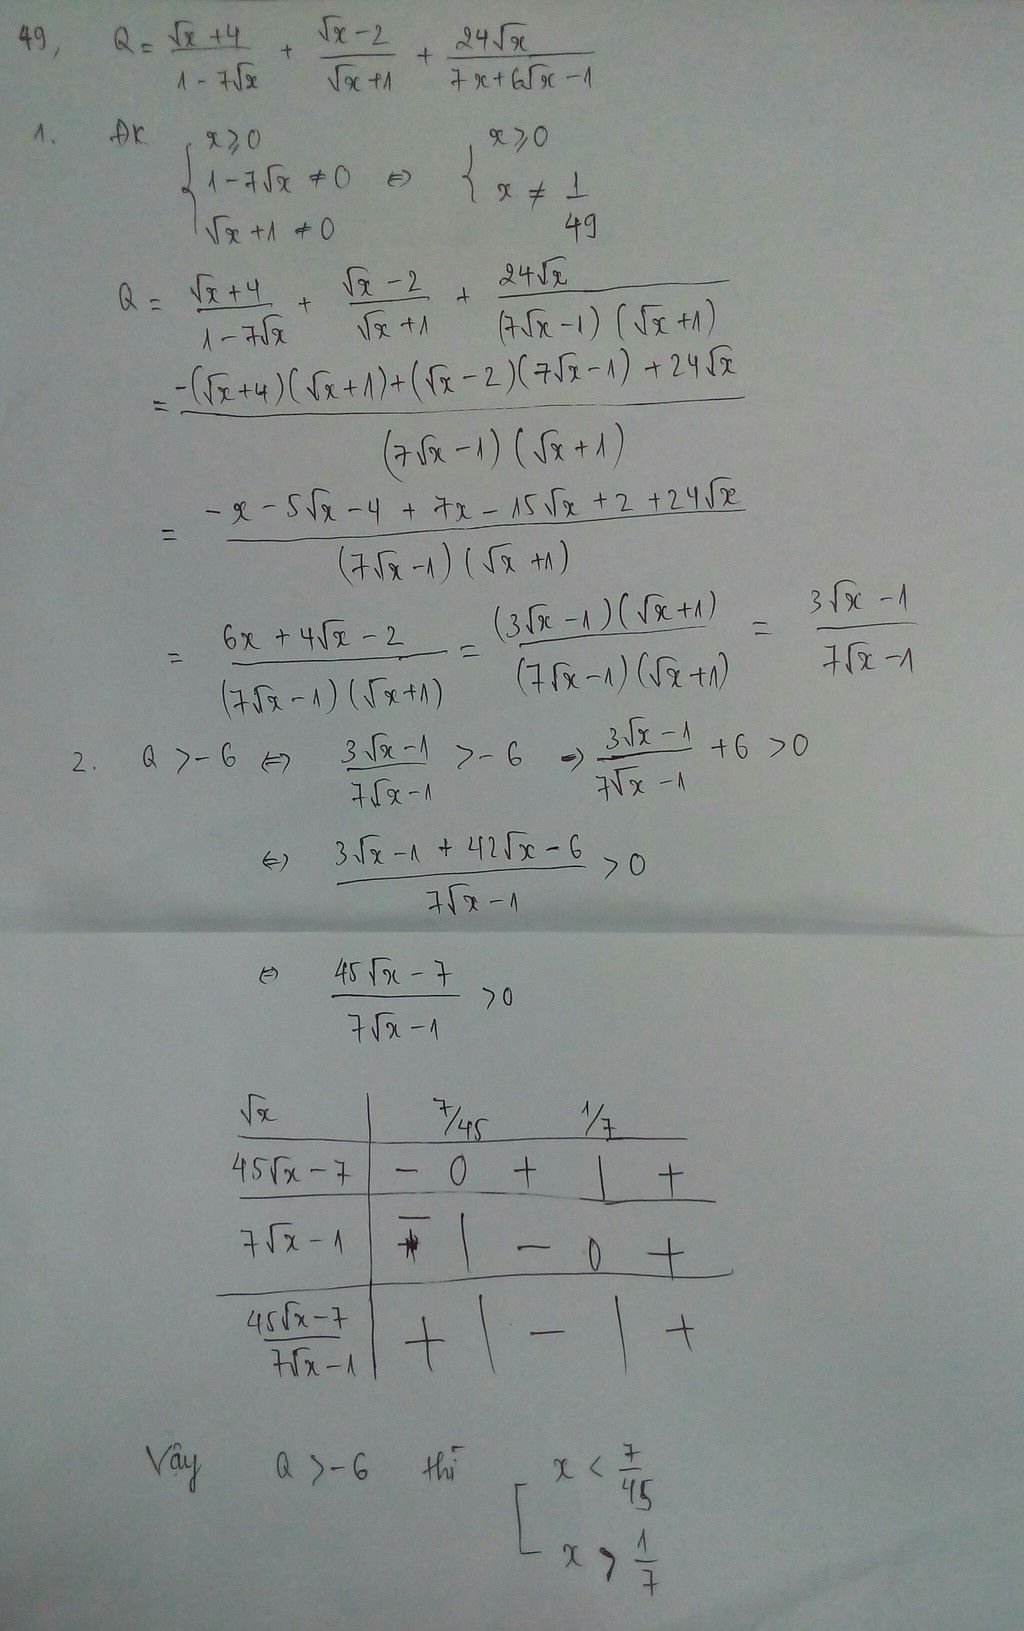 49, Q = (√x + 4)/(1 - 7√x) + (√x - 2)/(√x + 1) + 24√x/(7x + 6√x - 1)
1. ĐK { x ≥ 0
1 - 7√x ≠ 0 ⇔ { x ≥ 0
√x + 1 ≠ 0 x ≠ 1/49
Q = (√x + 4)/(1 - 7√x) + (√x - 2)/(√x + 1) + 24√x/((7√x - 1)(√x + 1))
= (-(√x + 4)(√x + 1) + (√x - 2)(7√x - 1) + 24√x)/((7√x - 1)(√x + 1))
= (-x - 5√x - 4 + 7x - 15√x + 2 + 24√x)/((7√x - 1)(√x + 1))
= (6x + 4√x - 2)/((7√x - 1)(√x + 1)) = ((3√x - 1)(√x + 1))/((7√x - 1)(√x + 1)) = (3√x - 1)/(7√x - 1)
2. Q > -6 ⇔ (3√x - 1)/(7√x - 1) > -6 → (3√x - 1)/(7√x - 1) + 6 > 0
⇔ (3√x - 1 + 42√x - 6)/(7√x - 1) > 0
⇔ (45√x - 7)/(7√x - 1) > 0
√x | 7/45 1/7
45√x - 7 | - 0 + | +
7√x - 1 | - | - 0 +
(45√x - 7)/(7√x - 1) | + | - | +
Vậy Q > -6 thì [ x < 7/45
x > 1/7